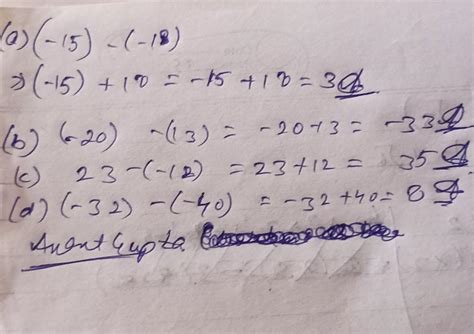 (a) (-15) - (-18)
⇒ (-15) + 18 = -15 + 18 = 3
(b) (-20) - (13) = -20-13 = -33
(c) 23 - (-12) = 23 + 12 = 35
(d) (-32) - (-40) = -32 + 40 = 8
Anant Gupta